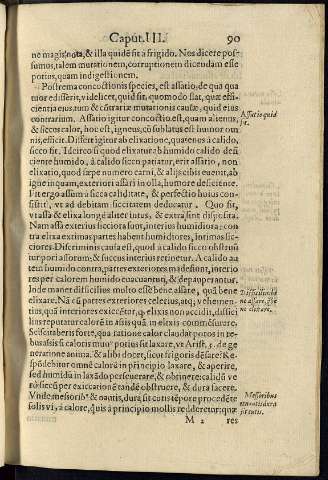 Caput. III. 90
ne magis nota, & illa quidē sit a frigido. Nos dicere pos-
sumus, talem mutationem, corruptionem dicendam esse
potius, quam indigestionem.
Postrema concoctionis species, est assatio, de qua qua
tuor edisserit, videlicet, quid sit, quomodo fiat, quæ effi-
cientia eius, tum & cōtrariæ mutationis causæ, quid eius
contrarium. Assatio igitur concoctio est, quam alienus,
& siccus calor, hoc est, igneus, cū sublatus est humor om
nis, efficit. Differt igitur ab elixatione, quatenus à calido,
sicco fit. Idcirco si quod elixatur ab humido calido defi
ciente humido, à calido sicco patiatur, erit assatio, non
elixatio, quod sæpe numero carni, & alijs cibis euenit, ab
igne inquam, exteriori assari in olla, humore deficiente.
Fit ergo assum à sicca caliditate, & perfectio huius con-
sistit, vt ad debitam siccitatem deducatur. Quo fit,
vt assa & elixa longè aliter intus, & extra sint disposita.
Nam assa exterius sicciora sunt, interius humidiora: con
tra elixa extimas partes habent humidiores, intimas sic-
ciores. Discriminis causa est, quod à calido sicco obstruū
tur pori assorum, & succus interius retinetur. A calido au
tem humido contra, partes exteriores madefiunt, interio
res per calorem humidū euacuantur, & depauperantur.
Inde manet difficilius multo esse bene assare, quā bene
elixare. Nā cū partes exteriores celerius, atq; vehemen-
tius, quā interiores exiccētur, q̃ elixis non accidit, diffici
lius reputatur calorē in assis quā in elixis commēsurare.
Sciscitaberis forte, qua ratione calor claudat poros in re
bus assis si caloris munꝰ potius sit laxare, vt Arist. 5. de ge
neratione anima. & alibi docet, sicut frigoris dēsare? Re-
spōdebitur omnē calorē in prīcipio laxare, & aperire,
sed humida in laxādo perseuerare, & obtinere: calidū ve
rò siccū per exiccationē tandē obstruere, & dura facere.
Vnde messoribꝰ & nautis, dura sit cutis tēpore procedēte
solis vi, à calore, quis à principio molli redderetur: quæ
M 2 res
Assatio quid
sit.
Difficilius bē
ne assare, quā be
ne elixare.
Messoribus
et nautis dura
fit cutis.